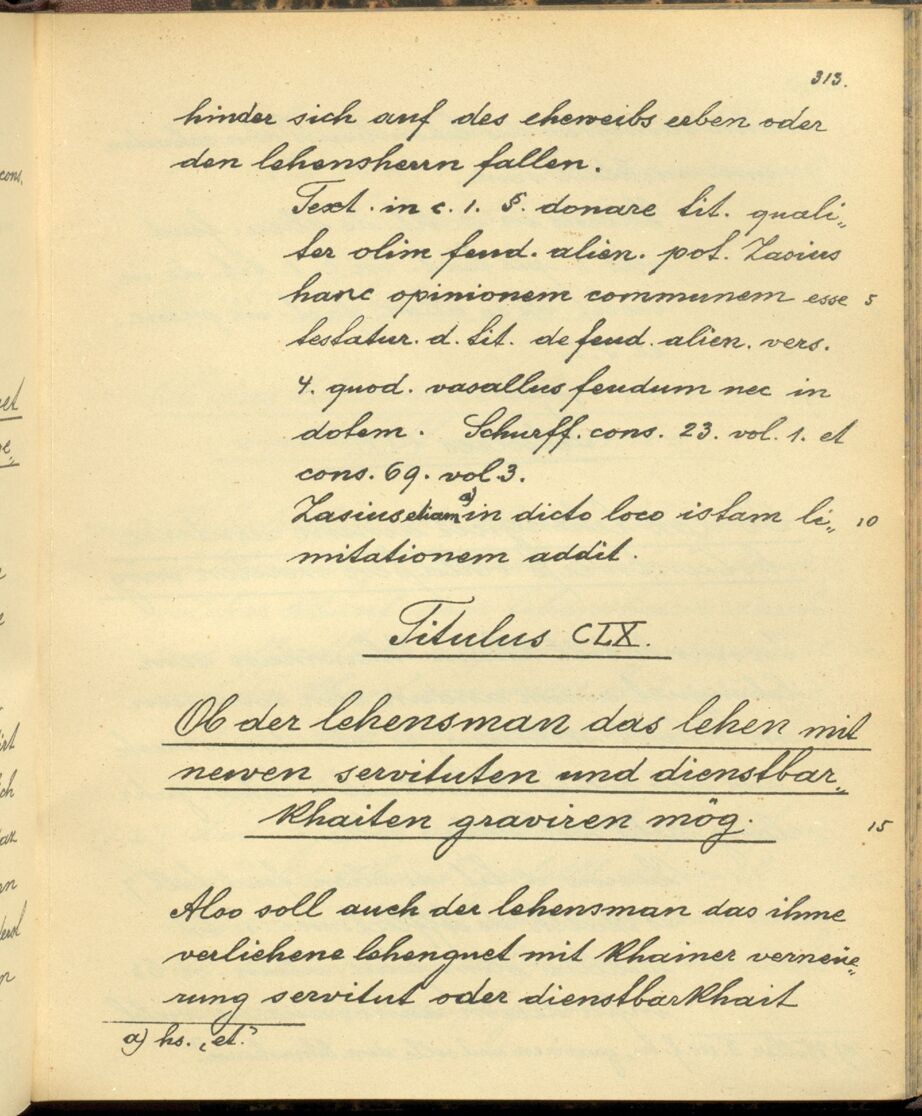 313.
hinder sich auf des eheweibs erben oder
den lehensherrn fallen.
Text. in c. 1. §. donare tit. quali„
ter olim feud. alien. pot. Zasius
hanc opinionem communem esse 5
testatur. d. tit. de feud. alien. vers.
4. quod. vasallus feudum nec in
dotem. Schurff. cons. 23. vol. 1. et
cons. 69. vol. 3.
Zasius etiam a) in dicto loco istam li„ 10
mitationem addit.
Titulus CLX.
Ob der lehensman das lehen mit
newen servituten und dienstbar„
khaiten graviren mög. 15
Also soll auch der lehensman das ihme
verlichene lehenguet mit khainer verneüe„
rung servitut oder dienstbarkhait
a) hs. „et.“
cons.